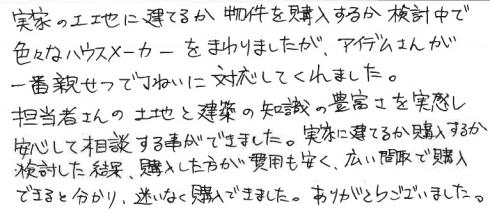 実家の土地に建てるか物件を購入するか検討中で
色々なハウスメーカーをまわりましたが、アイデムさんが
一番親せつで丁ねいに対応してくれました。
担当者さんの土地と建築の知識の豊富さを実感し
安心して相談する事ができました。実家に建てるか購入するか
検討した結果、購入した方が費用も安く、広い間取で購入
できると分かり、迷いなく購入できました。ありがとうございました。